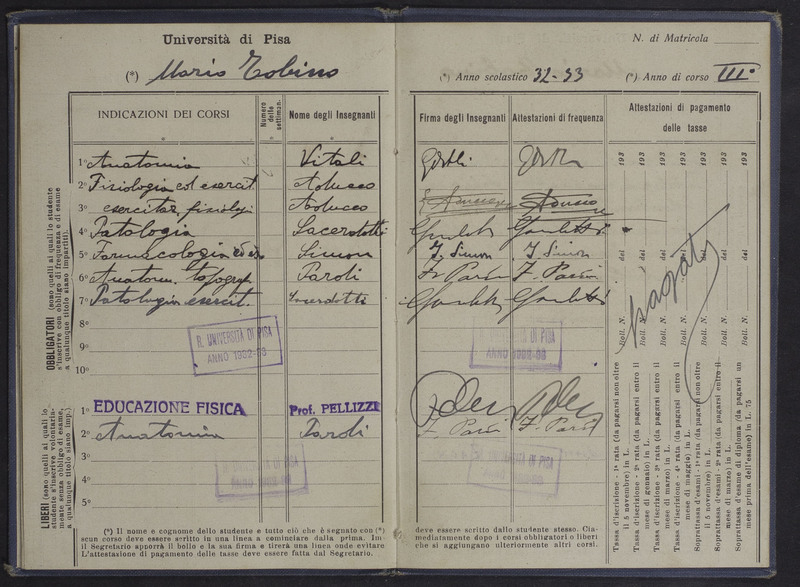 Università di Pisa
(*) Mario Tobino
INDICAZIONI DEI CORSI
Numero delle settiman.
Nome degli Insegnanti
OBBLIGATORI (sono quelli ai quali lo studente
s'inscrive con obbligo di frequenza e di esame
a qualunque titolo siano impartiti).
1° Anatomia Vitali
2° Fisiologia col esercit. Aducco
3° esercitaz. fisiologi Aducco
4° Patologia Sacerdotti
5° Farmacologia Simon
6° Anatom. topograf Paroli
7° Patologia esercit. Sacerdotti
8°
9°
10°
R. UNIVERSITÀ DI PISA
ANNO 1932-33
LIBERI (sono quelli ai quali lo
studente s'inscrive volontaria-
mente senza obbligo di esame,
a qualunque titolo siano imp.)
1° EDUCAZIONE FISICA Prof. PELLIZZI
2° Anatomia Paroli
3°
4°
5°
(*) Il nome e cognome dello studente e tutto ciò che è segnato con (*)
scun corso deve essere scritto in una linea a cominciare dalla prima. Im
il Segretario apporrà il bollo e la sua firma e tirerà una linea onde evitare
L'attestazione di pagamento delle tasse deve essere fatta dal Segretario.
N. di Matricola
(*) Anno scolastico 32-33 (*) Anno di corso III°
Firma degli Insegnanti
Attestazioni di frequenza
Attestazioni di pagamento
delle tasse
J. Simon J. Simon
UNIVERSITÀ DI PISA
ANNO 1932-33
193 193 193 193 193 193 193
del del del del del del del
Boll. N. Boll. N. Boll. N. Boll. N. Boll. N. Boll. N. Boll. N.
Pagato
Tassa d'iscrizione - 1ª rata (da pagarsi non oltre
il 5 novembre) in L.
Tassa d'iscrizione - 2ª rata (da pagarsi entro il
mese di gennaio) in L.
Tassa d'iscrizione - 3ª rata (da pagarsi entro il
mese di marzo) in L.
Tassa d'iscrizione - 4ª rata (da pagarsi entro il
mese di maggio) in L.
Soprattassa d'esami - 1ª rata (da pagarsi non oltre
il 5 novembre) in L.
Soprattassa d'esami - 2ª rata (da pagarsi entro il
mese di marzo) in L.
Soprattassa d'esame di diploma (da pagarsi un
mese prima dell'esame) in L. 75
deve essere scritto dallo studente stesso. Cia-
mediatamente dopo i corsi obbligatori o liberi
che si aggiungano ulteriormente altri corsi.